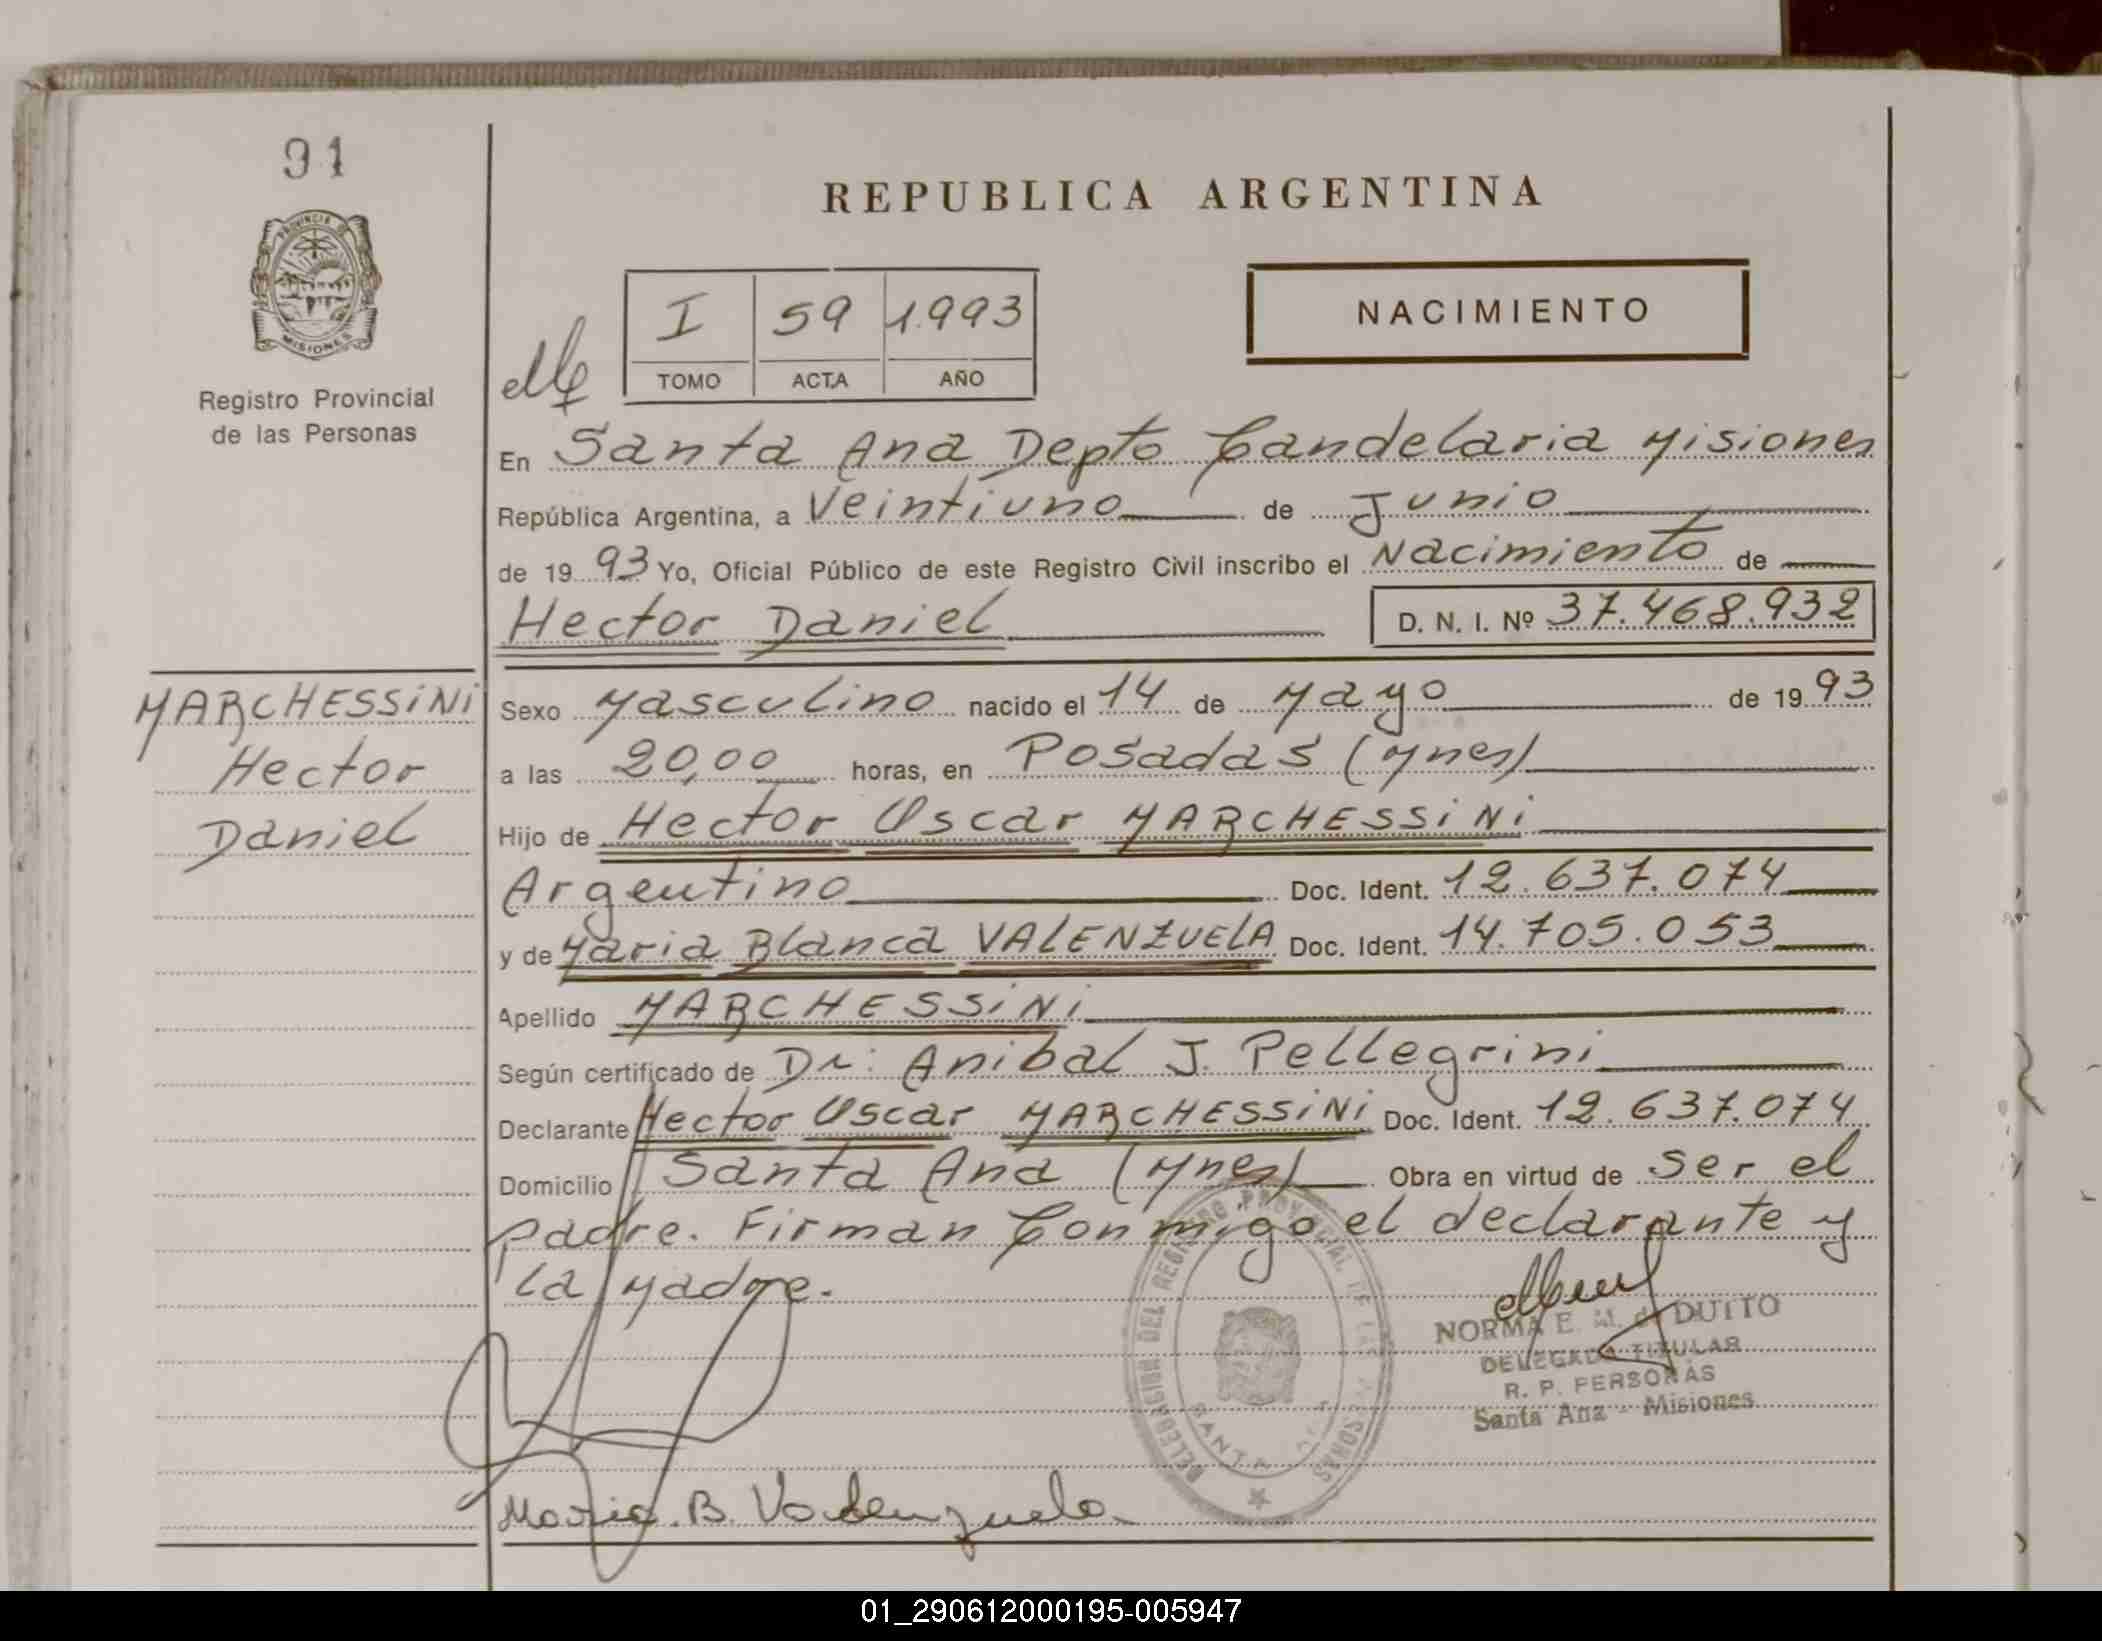 91
PROVINCIA DE
MISIONES
Registro Provincial
de las Personas
REPUBLICA ARGENTINA
I 59 1.993
TOMO ACTA AÑO
NACIMIENTO
En Santa Ana Depto Candelaria Misiones
República Argentina, a Veintiuno de Junio
de 19 93 Yo, Oficial Público de este Registro Civil inscribo el Nacimiento de
Hector Daniel D. N. I. Nº 37.468.932
MARCHESSiNi
Hector
Daniel
Sexo Masculino nacido el 14 de Mayo de 19 93
a las 20,00 horas, en Posadas (Mnes)
Hijo de Hector Oscar MARCHESSiNi
Argentino Doc. Ident. 12.637.074
y de Maria Blanca VALENZUELA Doc. Ident. 14.705.053
Apellido MARCHESSiNi
Según certificado de Dr: Anibal J. Pellegrini
Declarante Hector Oscar MARCHESSiNi Doc. Ident. 12.637.074
Domicilio Santa Ana (Mnes) Obra en virtud de ser el
padre. Firman Conmigo el declarante y
la Madre.
DELEGACION DEL REGISTRO PROVINCIAL DE LAS PERSONAS
SANTA ANA
NORMA E. M. de DUTTO
DELEGADA TITULAR
R. P. PERSONAS
Santa Ana - Misiones
Maria. B. Valenzuela
01_290612000195-005947